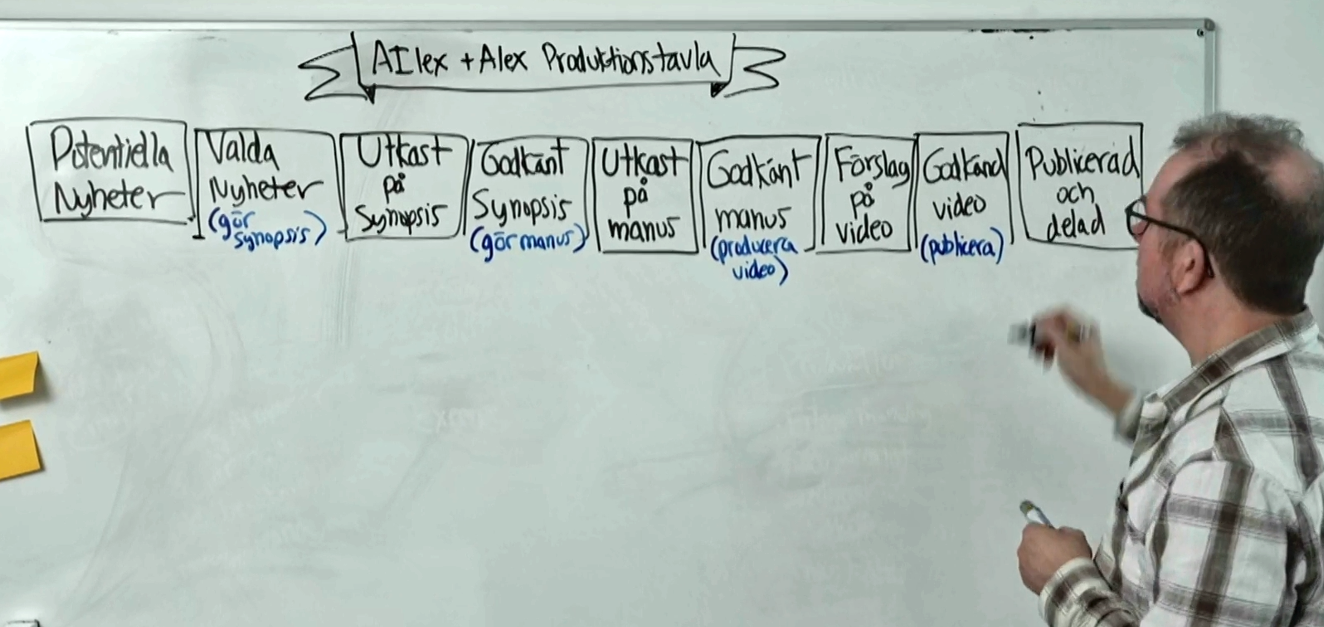 AIlex + Alex Produktionstavla
Potentiella
Nyheter
Valda
Nyheter
(gör
synopsis)
Utkast
på
Synopsis
Godkänt
Synopsis
(gör manus)
Utkast
på
manus
Godkänt
manus
(producera
video)
Förslag
på
video
Godkänd
video
(publicera)
Publicerad
och
delad